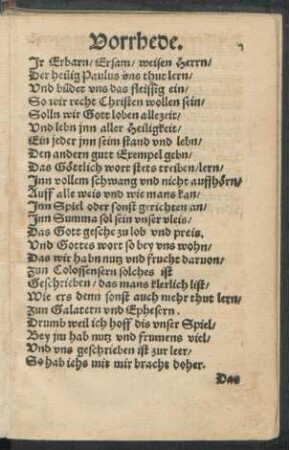 Vorrhede.
Ir Erbarn/ Ersam/ weisen Herrn/
Der heilig Paulus vns thut lern/
Vnd bildet vns das fleissig ein/
So wir recht Christen wollen sein/
Solln wir Gott loben allezeit/
Vnd lebn jnn aller Heiligkeit/
Ein jeder jnn seim stand vnd lebn/
Den andern gutt Exempel gebn/
Das Göttlich wort stets treiben/lern/
Jnn vollem schwang vnd nicht auffhörn/
Auff alle weis vnd wie mans kan/
Jnn Spiel oder sonst gerichten an/
Jnn Summa sol sein vnser vleis/
Das Gott gesche zu lob vnd preis.
Vnd Gottes wort so bey vns wohn/
Das wir habn nutz vnd frucht daruon/
Zun Colossensern solches ist
Geschrieben/ das mans klerlich list/
Wie ers denn sonst auch mehr thut lern/
Zun Galatern vnd Ephesern.
Drumb weil ich hoff dis vnser Spiel/
Bey jm hab nutz vnd frumens viel/
Vnd vns geschrieben ist zur leer/
So hab ichs mit mir bracht doher.
Das